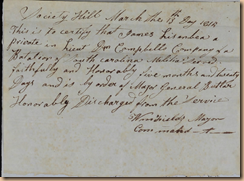 Society Hill March the 13 Day 1815
This is to certify that James
a private in Lieut Dn Campbells Company of a
Batalion of north carolina Militia Served
faithfully and Honorably five months and twenty
Days and is by order of Major General Butler
Honorably Discharged from the Service
Major
Commandg